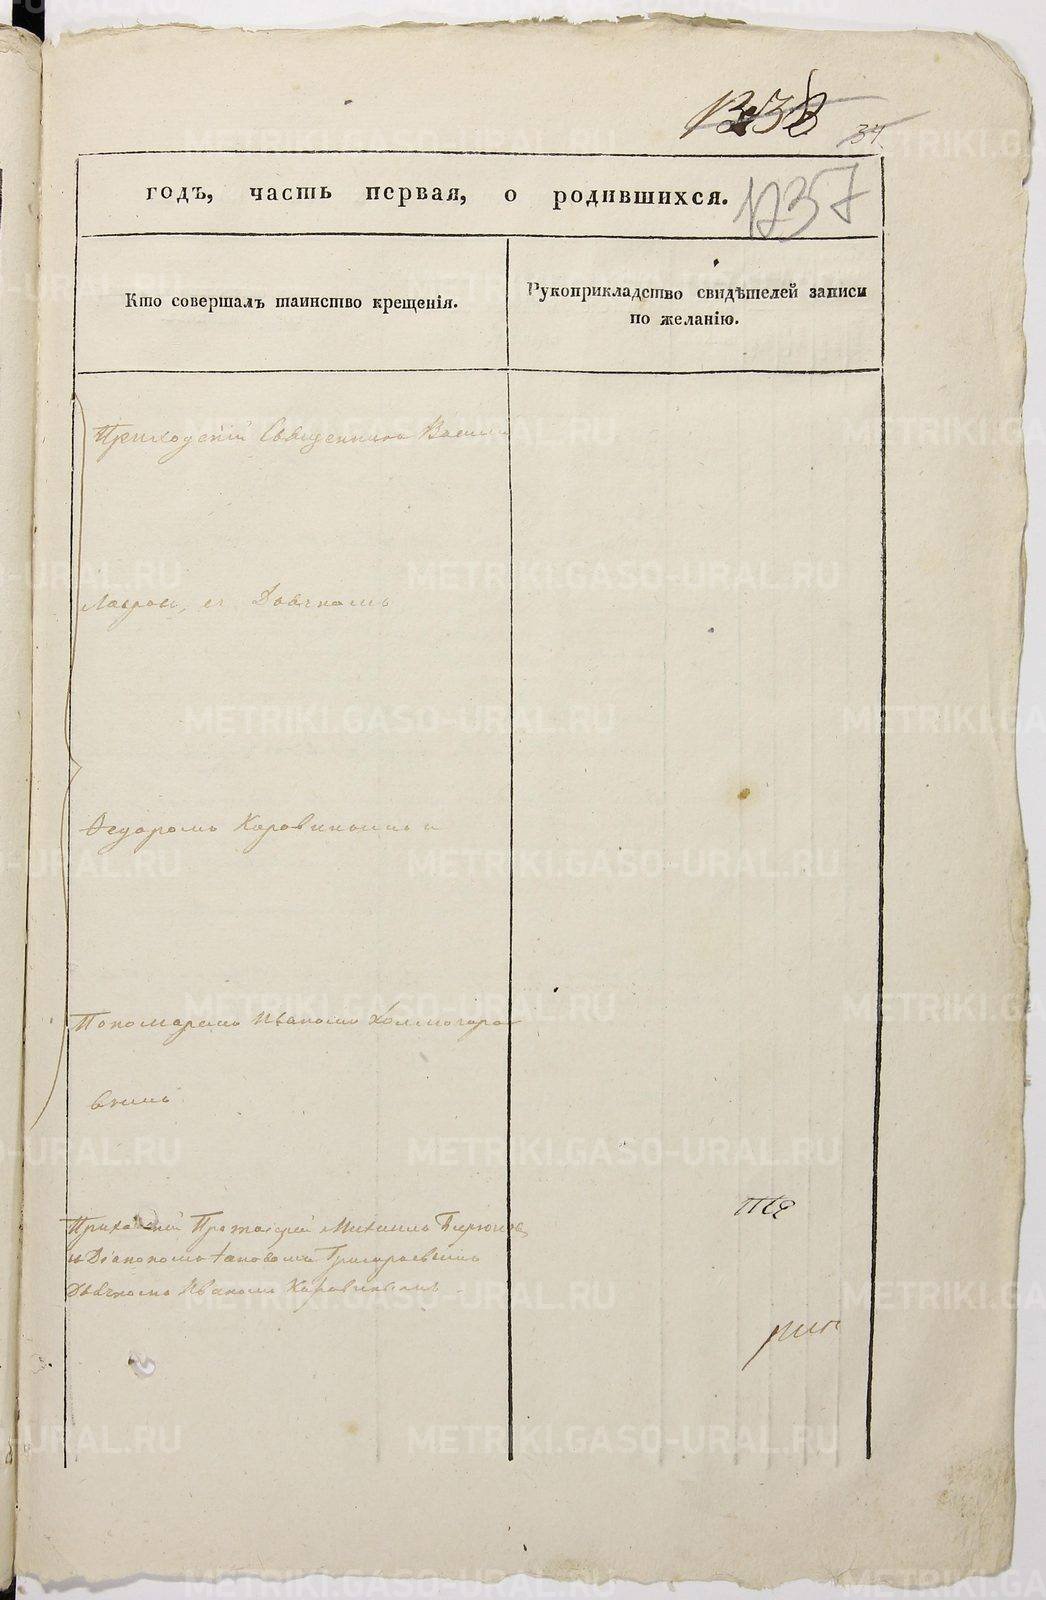 37
1237
годъ, часть первая, о родившихся.
Кто совершалъ таинство крещенія.
Рукоприкладство свидѣтелей записи
по желанію.
Приходскій Священникъ Василій
съ Дьячкомъ
Федоромъ Коровинымъ и
Пономаремъ Иваномъ Холмогоро
вымъ
Приходскій Протоіерей Михаилъ Бирюковъ
и Діакономъ Григорьевымъ
Дьячкомъ Иваномъ Коровинымъ
METRIKI.GASO-URAL.RU